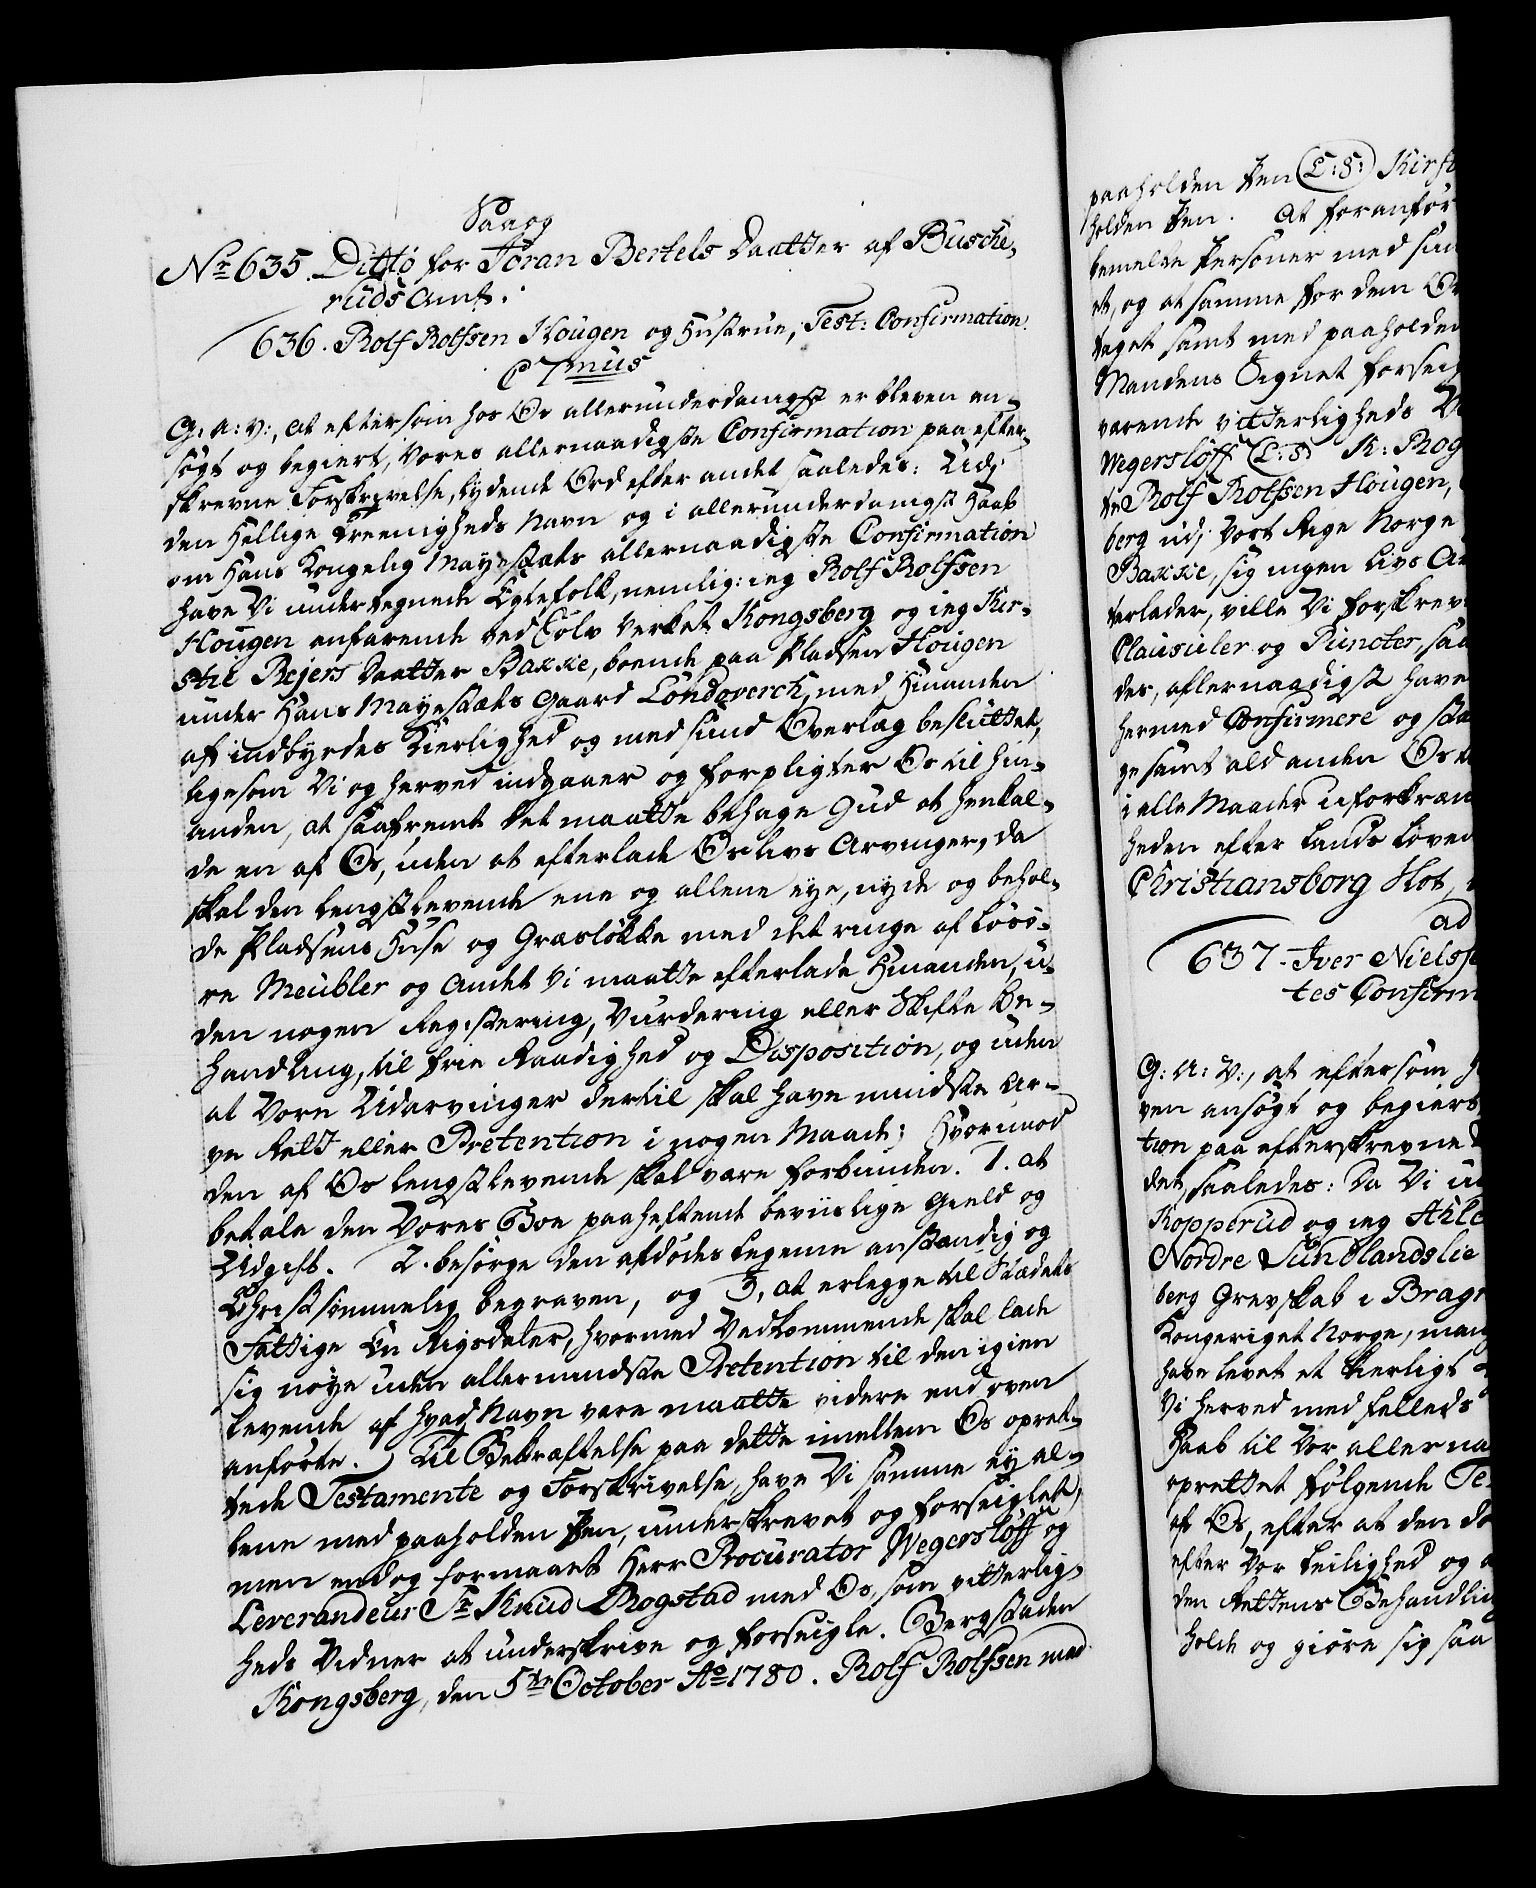 Saa og
No 635. Ditto for Jöran Bertels Daatter af Busche-
ruds Amt.
636. Rolf Rolfsen Hougen og Hustrue, Test: Confirmation.
C 7mus
G: A: V:, at eftersom hos Os allerunderdanigst er bleven an-
søgt og begiert, Vores allernaadigste Confirmation paa efter-
skrevne Forskrivelse, lydende Ord efter andet saaledes: Udj
den Hellige Treenigheds Navn og i allerunderdanigst Haab
om Hans Kongelig Mayestæts allernaadigste Confirmation
have Vi undertegnede Egtefolk, nemlig: ieg Rolf Rolfsen
Hougen anfarende ved Sölv Verket Kongsberg og ieg Kir-
stie Rejers Daatter Bakkie, boende paa Pladsen Hougen
under Hans Mayestæts Gaard Londqverch, med hinanden
af indbyrdes Kierlighed og med sund Overlæg besluttet,
ligesom Vi og herved indgaaer og forpligter Os til hin-
anden, at saafremt det maatte behage Gud at henkal-
de en af Os, uden at efterlade Os Livs Arvinger, da
skal den længstlevende ene og allene eye, nyde og behol-
de Pladsens Huse og Græsløkke med det ringe af Løsø-
re Meubler og andet Vi maatte efterlade hinanden, u-
den nogen Registering, Vurdering eller Skifte Be-
handling, til frie Raadighed og Disposition, og uden
at Vore Udarvinger dertil skal have mindste Ar-
ve Rett eller Pretention i nogen Maade; Hvorimod
den af Os lengstlevende skal være forbunden. 1. at
betale den Vores Boe paaheftende beviislige Gield og
Udgift. 2. besørge den afdødes Legeme anstændig og
Christsømmelig begraven, og 3, at erlegge til Stædets
Fattige En Rigsdaler, hvormed Vedkommende skal lade
sig nøye uden allermindste Pretention til den igien
levende af hvad Navn være maatte videre end oven
anførte. Til Bekræftelse paa dette imellem Os opret-
tede Testamente og Forskrivelse, have Vi samme ey al-
lene med paaholden Pen, underskrevet og forseiglet,
men endog formaaet Herr Procurator Wegersløff og
Leverandeur Sr Knud Rogstad med Os, som vitterlig-
heds Vidner at underskrive og forseigle. Bergstaden
Kongsberg, den 5te October Ao 1780. Rolf Rolfsen med
paaholden Pen (L: S:) Kirst
holden Pen. At foranfør
bemelte Personer med sun
et, og at samme for dem O
taget samt med paaholden
Mandens Signet forseig
værende vitterligheds V
Wegersløff (L: S) K: Rog
te Rolf Rolfsen Hougen,
berg udj Vort Rige Norge
Bakkie, sig ingen Livs Ar
terlader, ville Vi forskrev
Clausuler og Puncter, saa
der, allernaadigst have
hermed Confirmere og sta
ge samt ald anden Os
i alle Maader uforkræn
heden efter Lands Loven
Christiansborg Slot,
ad
637. Iver Nielss
tes Confirm
G: A: V:, at eftersom h
ven ansøgt og begiert
tion paa efterskrevne
det, saaledes: Da Vi u
Kopperud og ieg Ahle
Nordre Sundlandslie
berg Grevskab i Bragn
Kongeriget Norge, mang
have levet et kierligt
Vi herved med felleds
Haab til Vor allerna
oprettet følgende Te
af Os, efter at den dø
efter Vor Leilighed og
den Rettens Behandlin
holde og giøre sig saa